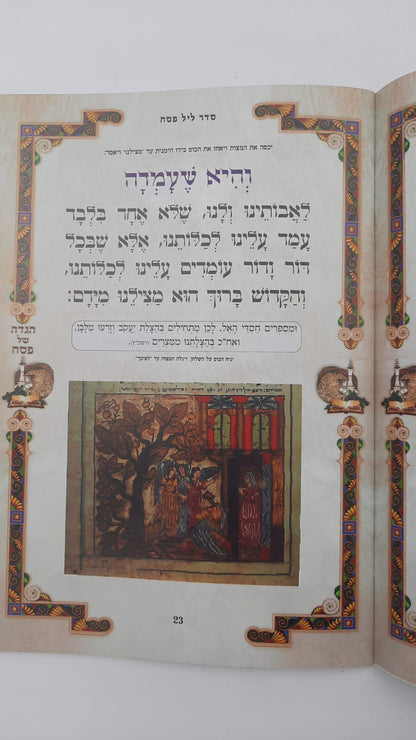 סדר ליל פסח
יכסה את המצות ויאחז את הכוס בידו הימנית עד 'מצילנו' ויאמר:
וְהִיא שֶׁעָמְדָה
לַאֲבוֹתֵינוּ וְלָנוּ, שֶׁלֹּא אֶחָד בִּלְבָד
עָמַד עָלֵינוּ לְכַלּוֹתֵנוּ, אֶלָּא שֶׁבְּכָל
דּוֹר וָדוֹר עוֹמְדִים עָלֵינוּ לְכַלּוֹתֵנוּ,
וְהַקָּדוֹשׁ בָּרוּךְ הוּא מַצִּילֵנוּ מִיָּדָם:
ומספרים חסדי האל. לכן מתחילים בהצלת יעקב וזרעו מלבן,
ואח"כ בהצלתנו ממצרים
יניח הכוס על השלחן, ויגלה המצות עד
הגדה
של
פסח
23